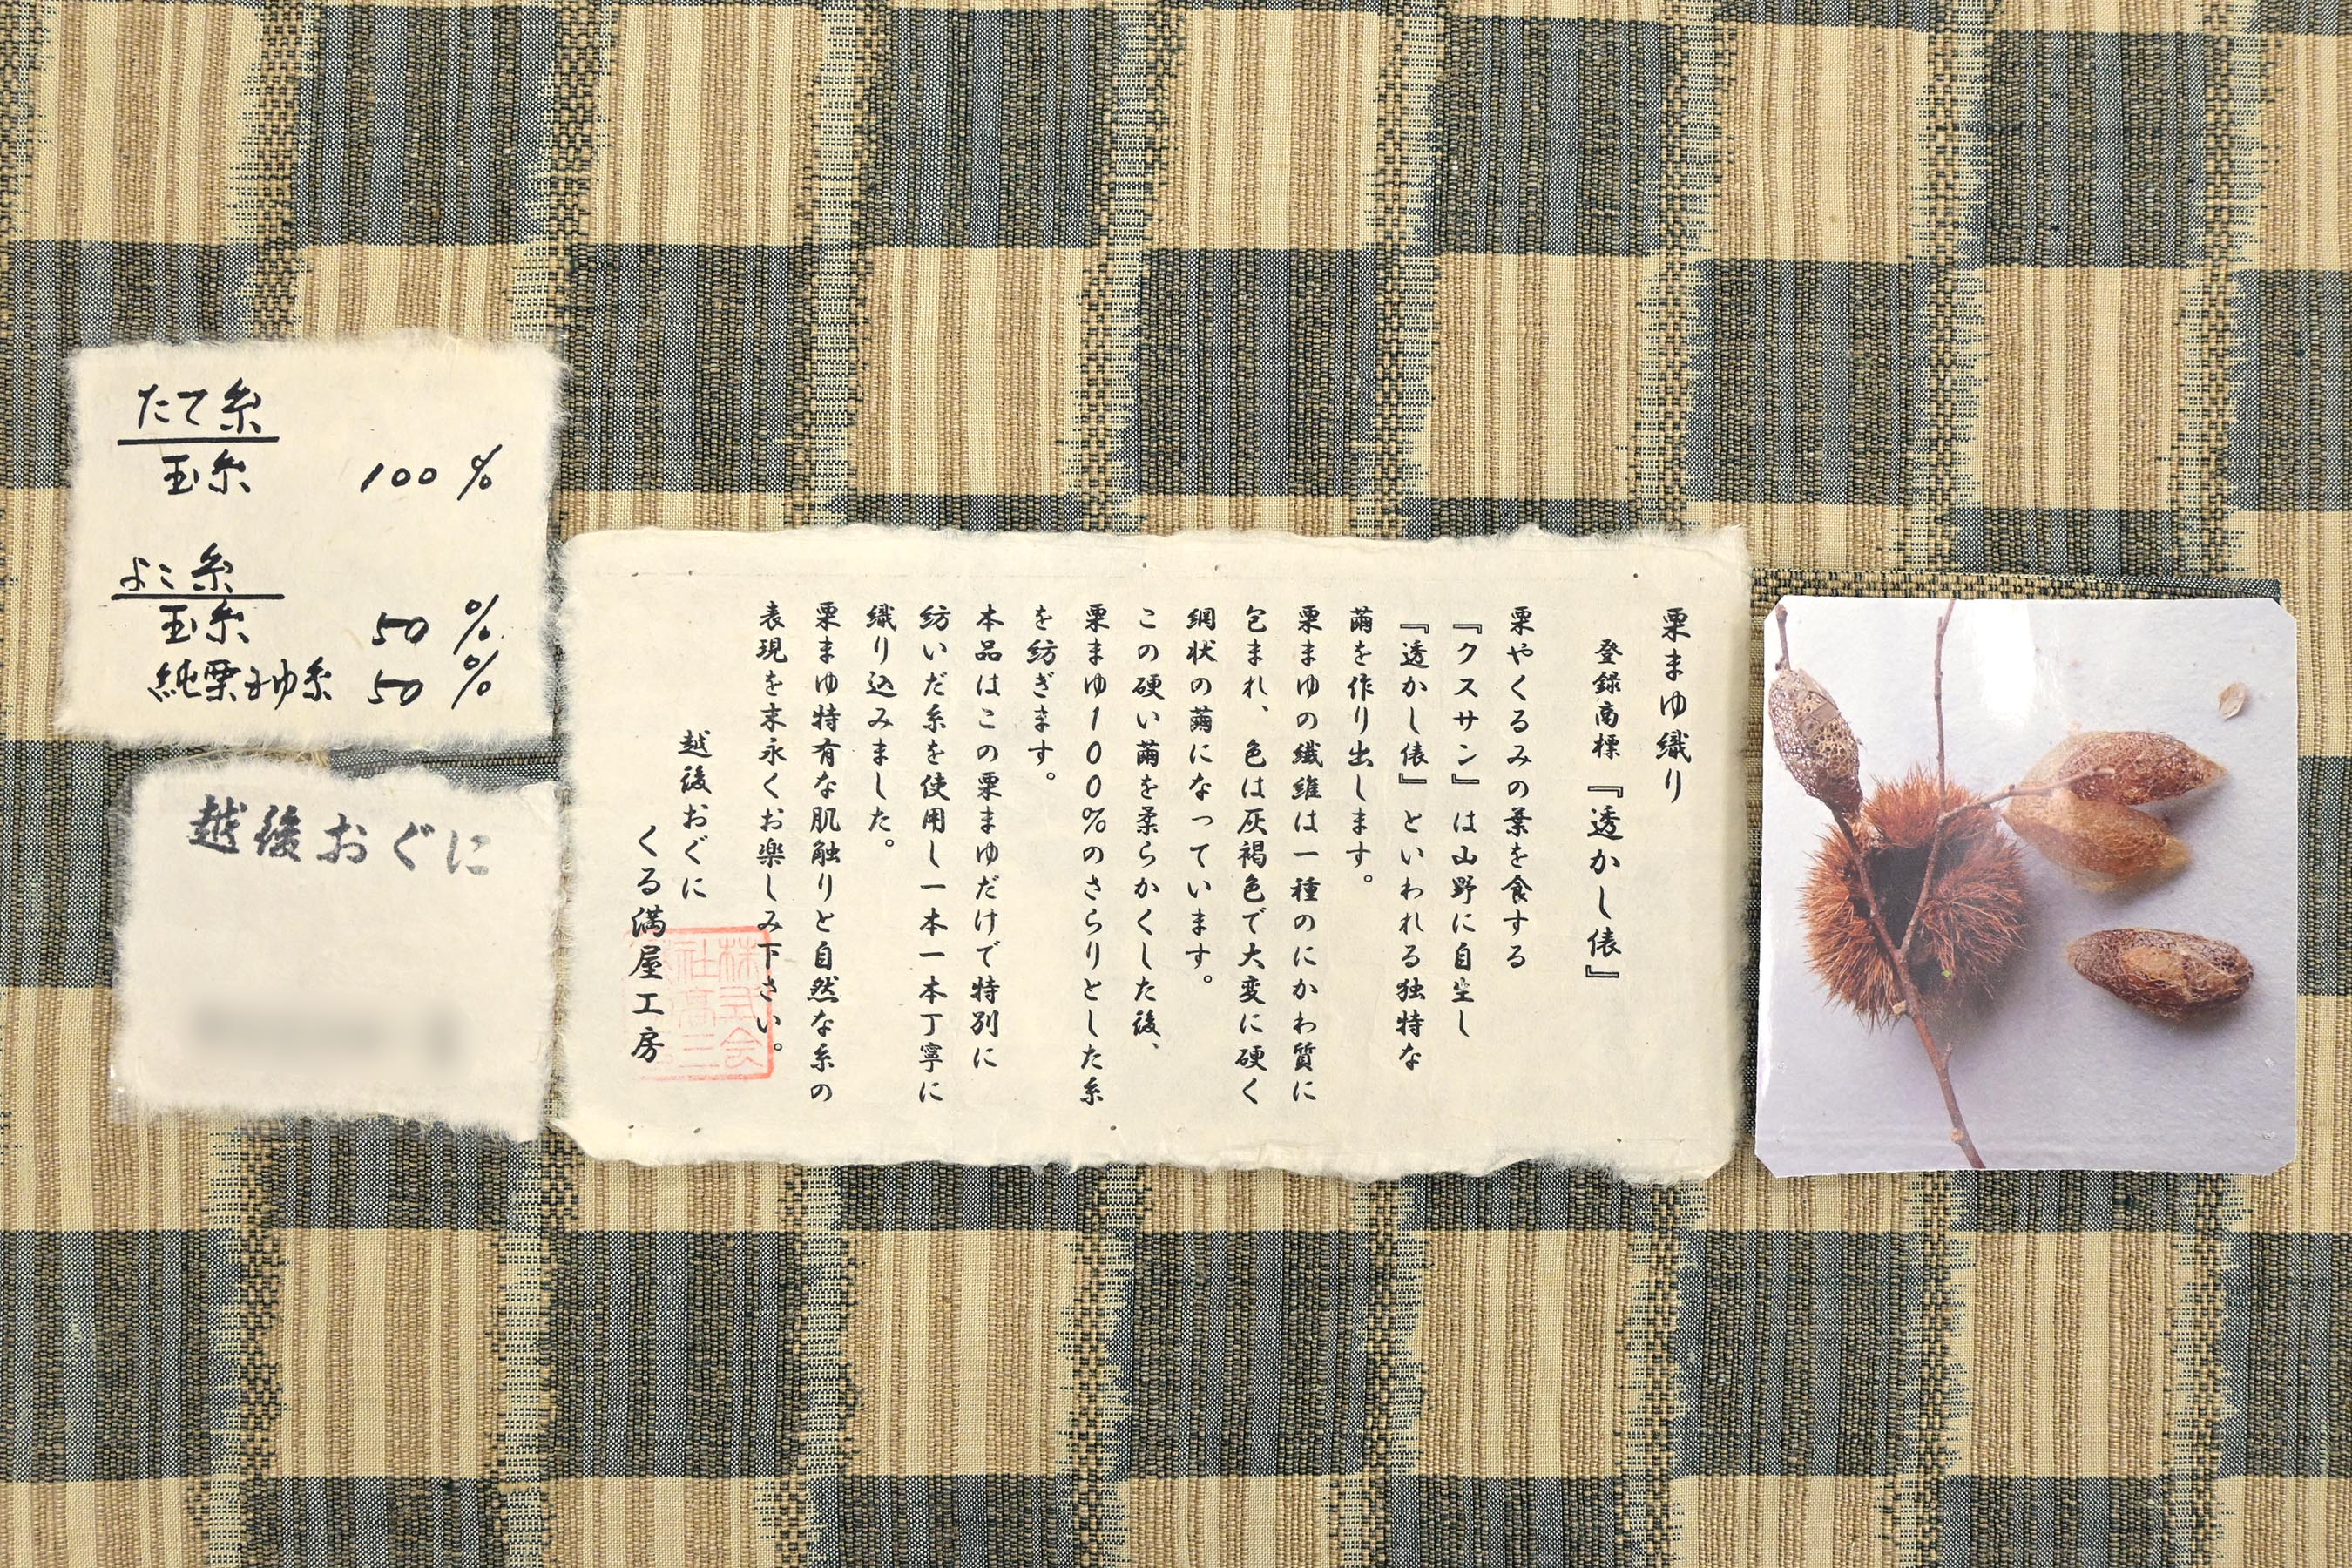 たて糸
玉糸 100%
よこ糸
玉糸 50%
純栗まゆ糸 50%
越後おぐに
栗まゆ織り
登録商標『透かし俵』
栗やくるみの葉を食する
『クスサン』は山野に自生し
『透かし俵』といわれる独特な
繭を作り出します。
栗まゆの繊維は一種のにかわ質に
包まれ、色は灰褐色で大変に硬く
網状の繭になっています。
この硬い繭を柔らかくした後、
栗まゆ100%のさらりとした糸
を紡ぎます。
本品はこの栗まゆだけで特別に
紡いだ糸を使用し一本一本丁寧に
織り込みました。
栗まゆ特有な肌触りと自然な糸の
表現を末永くお楽しみ下さい。
越後おぐに
くる満屋工房
株式会
社高三